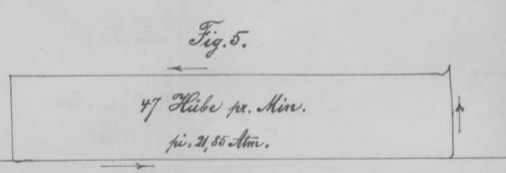 Fig. 5.
47 Hübe pr. Min.
pi = 21,85 Atm.